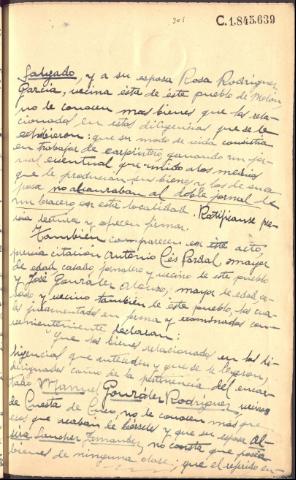 C.1.845.639
Salgado, y a su esposa Rosa Rodriguez
Garcia, vecina esta de este pueblo de Melon,
no de conocen mas bienes que los rela-
cionados en estas diligencias que se le
exhibieron: que su modo de vida consistia
en trabajos de carpintero ganando un jor-
nal eventual que unido a los medios
que le producian sus bienes y los de su es-
posa no alcanzaban al doble jornal de
un bracero en esta localidad. Ratifícanse pre-
via lectura y ofrecen firmar.
También comparecen en este acto
previa citacion Antonio Cés Pardal, mayor
de edad, casado, jornalero y vecino de este pueblo
y José Gonzalez, mayor de edad, ca-
sado, y vecino también de este pueblo, los cua-
les juramentados en forma y examinados con-
venientemente declaran:
Que los bienes relacionados en las di-
ligencias que anteceden y que se le leyeron,
designados como de la pertenencia del encar-
tado Manuel Gonzalez Rodriguez, vecino
de Cuesta de no le conocen mas que
esos que acaban de leérsele y que su esposa El-
vira Sanchez Fernandez, no consta que posea
bienes de ninguna clase; que el referido en-